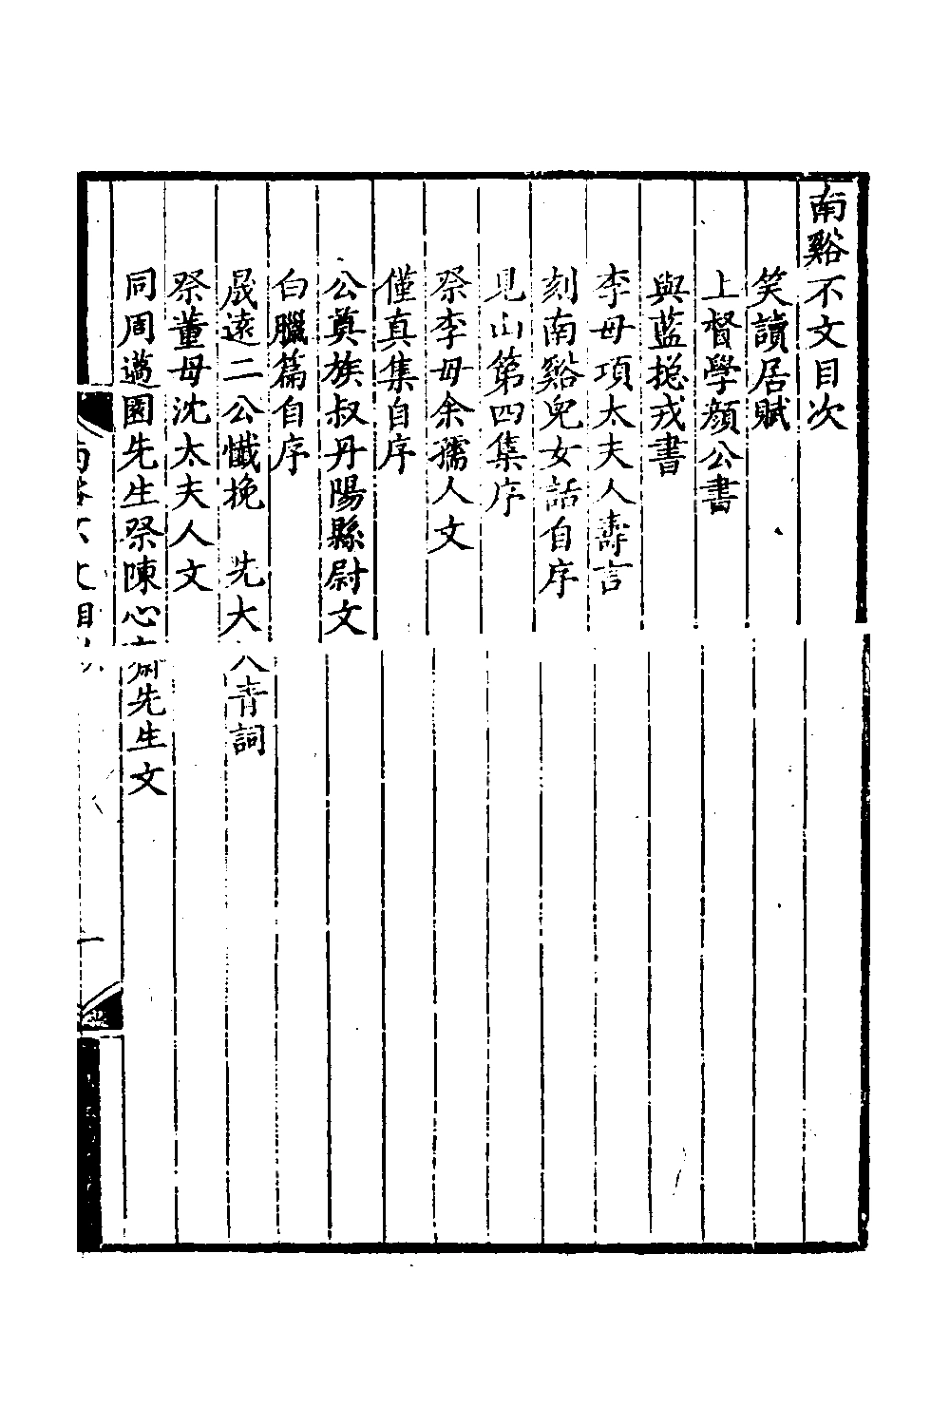 南谿不文目次
笑讀居賦
上督學顏公書
與藍摠戎書
李母項太夫人壽言
刻南谿兒女話自序
見山第四集序
祭李母余孺人文
僅真集自序
公奠族叔丹陽縣尉文
白臘篇自序
晟遠二公懺挽　先大人青詞
祭董母沈太夫人文
同周邁園先生祭陳心齋先生文
一